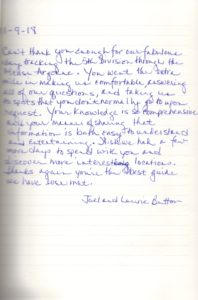 11-9-18
Can't thank you enough for our fabulous
day tracking the 5th Division through the
Meuse Argonne. You went the extra
mile in making us comfortable, answering
all of our questions, and taking us
to spots that you don't normally go to upon
request. Your knowledge is so comprehensive
and your manner of sharing that
information is both easy to understand
and entertaining. I wish we had a few
more days to spend with you and
discover more interesting locations.
Thanks again you're the best guide
we have ever met.
Joel and Laurie Button